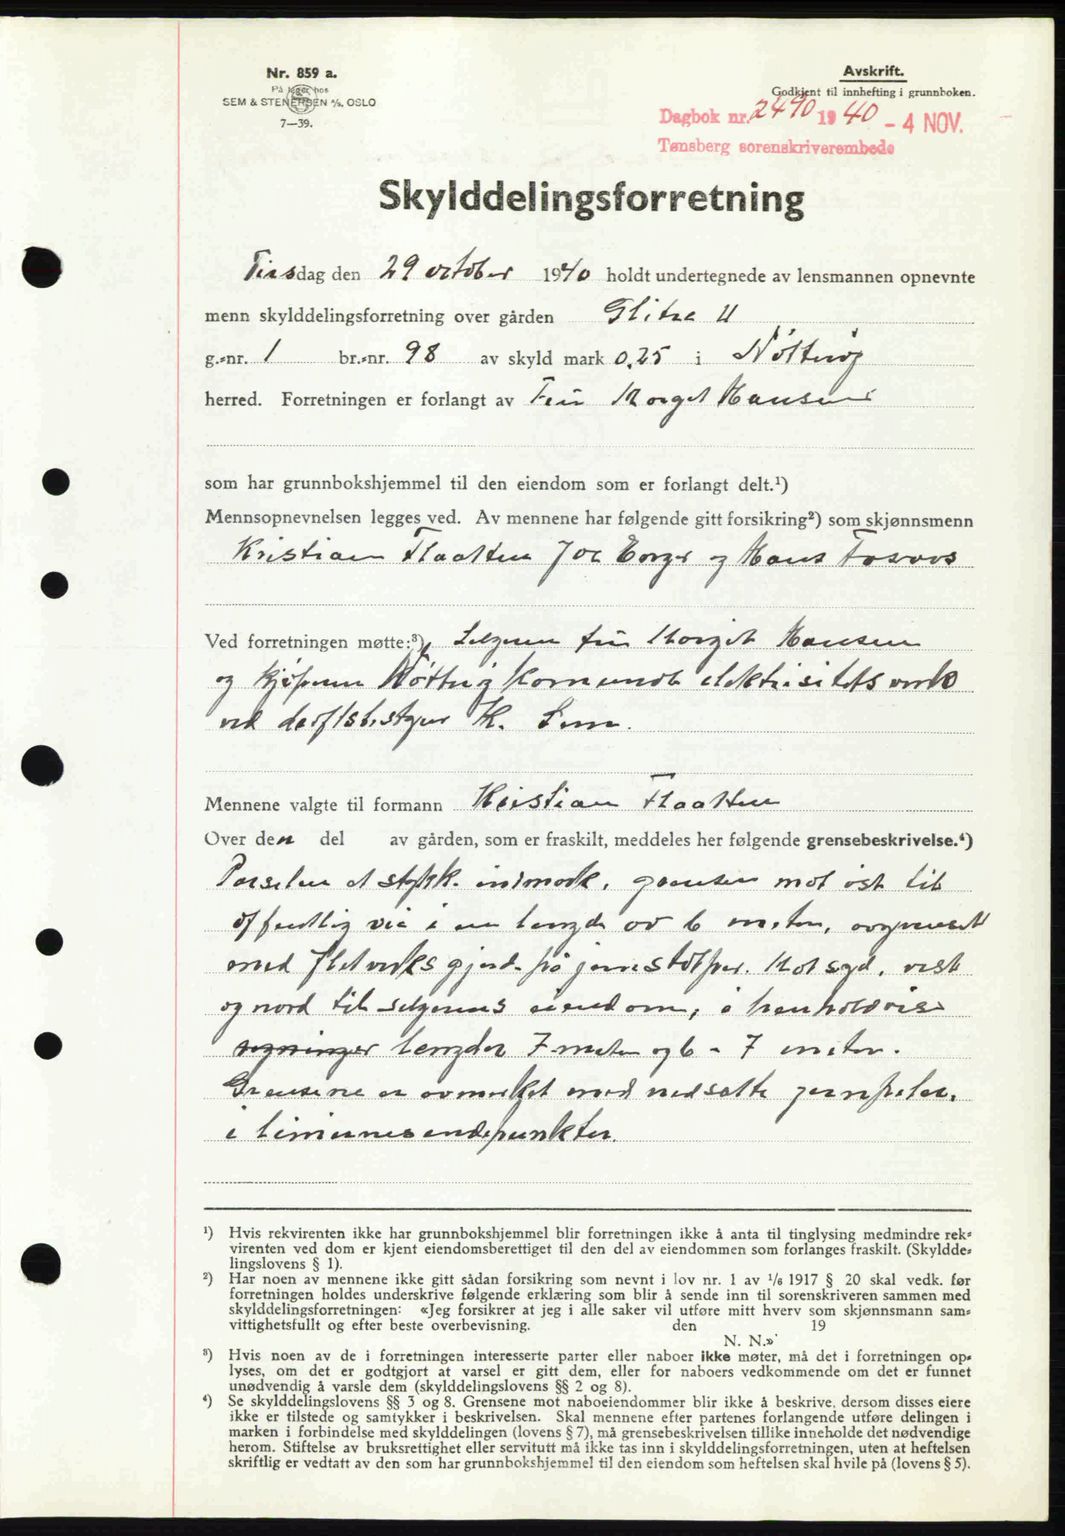 Nr. 859 a.
På lager hos
SEM & STENERSEN A/S, OSLO
7—39.
Avskrift.
Godkjent til innhefting i grunnboken.
Dagbok nr. 2490 1940 - 4 NOV.
Tønsberg sorenskriverembede
Skylddelingsforretning
Tirsdag den 29 october 1940 holdt undertegnede av lensmannen opnevnte
menn skylddelingsforretning over gården Glitne U
g.-nr. 1 br.-nr. 98 av skyld mark 0,25 i Nøtterøy
herred. Forretningen er forlangt av Hansen
som har grunnbokshjemmel til den eiendom som er forlangt delt.¹)
Mennsopnevnelsen legges ved. Av mennene har følgende gitt forsikring²) som skjønnsmenn
Kristian Flaatten og Hans
Ved forretningen møtte:³) Selgeren Hansen
og kjøperen Nøtterøy kommunale elektrisitetsverk
ved driftsbestyrer H. Sem.
Mennene valgte til formann Kristian Flaatten
Over den del av gården, som er fraskilt, meddeles her følgende grensebeskrivelse.⁴)
Parselen et stykk. innmark, grensen mot øst til
offentlig vei i en lengde av 6 meter, avgrenset
med flettverksgjerde på jernstolper. Mot syd, vest
og nord til selgerens eiendom, i henholdsvise
lengder 7 meter og 6 - 7 meter.
Grensene er avmerket med nedsatte jernpeler,
i linienes endepunkter.
¹) Hvis rekvirenten ikke har grunnbokshjemmel blir forretningen ikke å anta til tinglysing medmindre rek-
virenten ved dom er kjent eiendomsberettiget til den del av eiendommen som forlanges fraskilt. (Skyldde-
lingslovens § 1).
²) Har noen av mennene ikke gitt sådan forsikring som nevnt i lov nr. 1 av 1/6 1917 § 20 skal vedk. før
forretningen holdes underskrive følgende erklæring som blir å sende inn til sorenskriveren sammen med
skylddelingsforretningen: «Jeg forsikrer at jeg i alle saker vil utføre mitt hverv som skjønnsmann sam-
vittighetsfullt og efter beste overbevisning. den 19
N. N.»
³) Hvis noen av de i forretningen interesserte parter eller naboer ikke møter, må det i forretningen op-
lyses, om det er godtgjort at varsel er gitt dem, eller for naboers vedkommende om det er funnet
unødvendig å varsle dem (skylddelingslovens §§ 2 og 8).
⁴) Se skylddelingslovens §§ 3 og 8. Grensene mot naboeiendommer blir ikke å beskrive, dersom disses eiere
ikke er tilstede og samtykker i beskrivelsen. Skal mennene efter partenes forlangende utføre delingen i
marken i forbindelse med skylddelingen (lovens § 7), må grensebeskrivelsen tillike inneholde det nødvendige
herom. Stiftelse av bruksrettighet eller servitutt må ikke tas inn i skylddelingsforretningen, uten at heftelsen
skriftlig er vedtatt av den som har grunnbokshjemmel til den eiendom som heftelsen skal hvile på (lovens § 5).